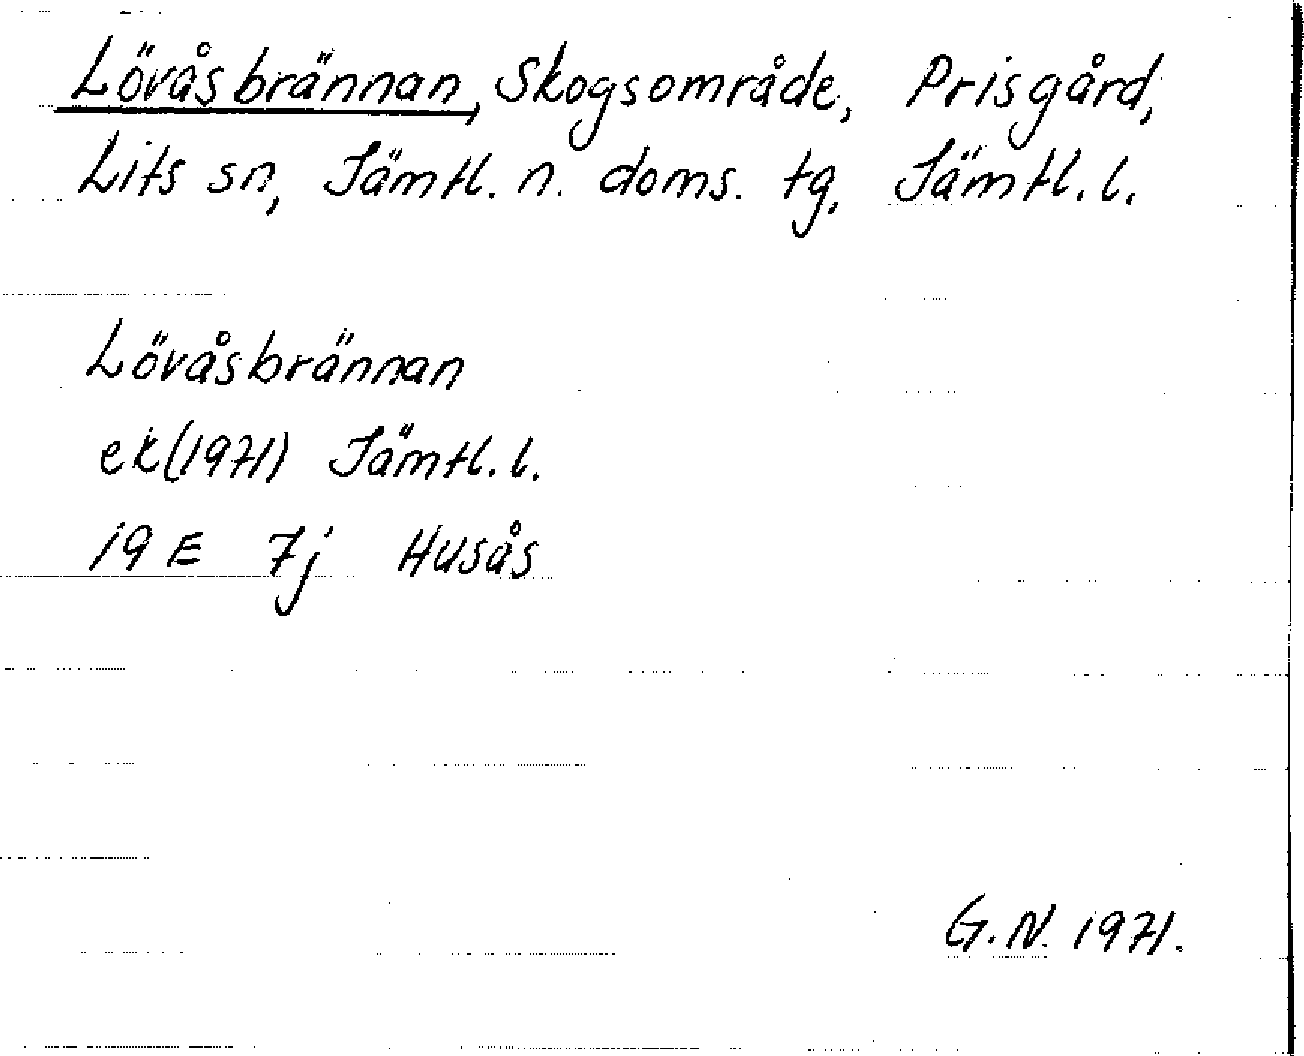 Lövåsbrännan, Skogsområde, Prisgård,
Lits sn, Jämtl. n. doms. tg, Jämtl. l.
Lövåsbrännan
ek(1971) Jämtl. l.
19 E 7j Husås
G. N. 1971.